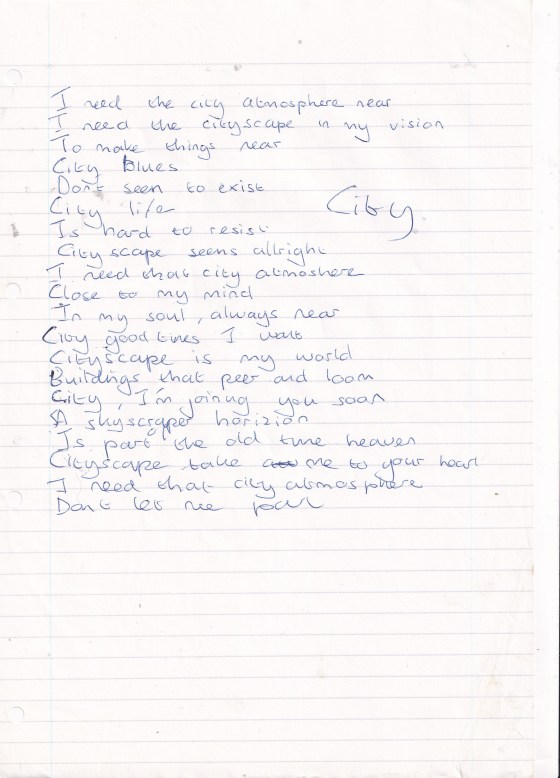 I need the city atmosphere near
I need the cityscape in my vision
To make things near
City blues
Don't seen to exist
City life
City
Is hard to resist
City scape seems allright
I need that city atmoshere
Close to my mind
In my soul, always near
City good times I want
Cityscape is my world
Buildings that peer and loom
City, I'm joining you soon
A skyscraper horizion
Is part of the old time heaven
Cityscape take me to your heart
I need that city atmosphere
Don't let me part